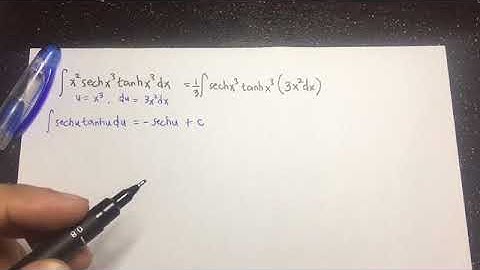 ∫x²sechx³tanhx³dx = ⅓∫sechx³tanhx³(3x²dx)
u = x³, du = 3x²dx
∫sechutanhudu = -sechu + c
0.8